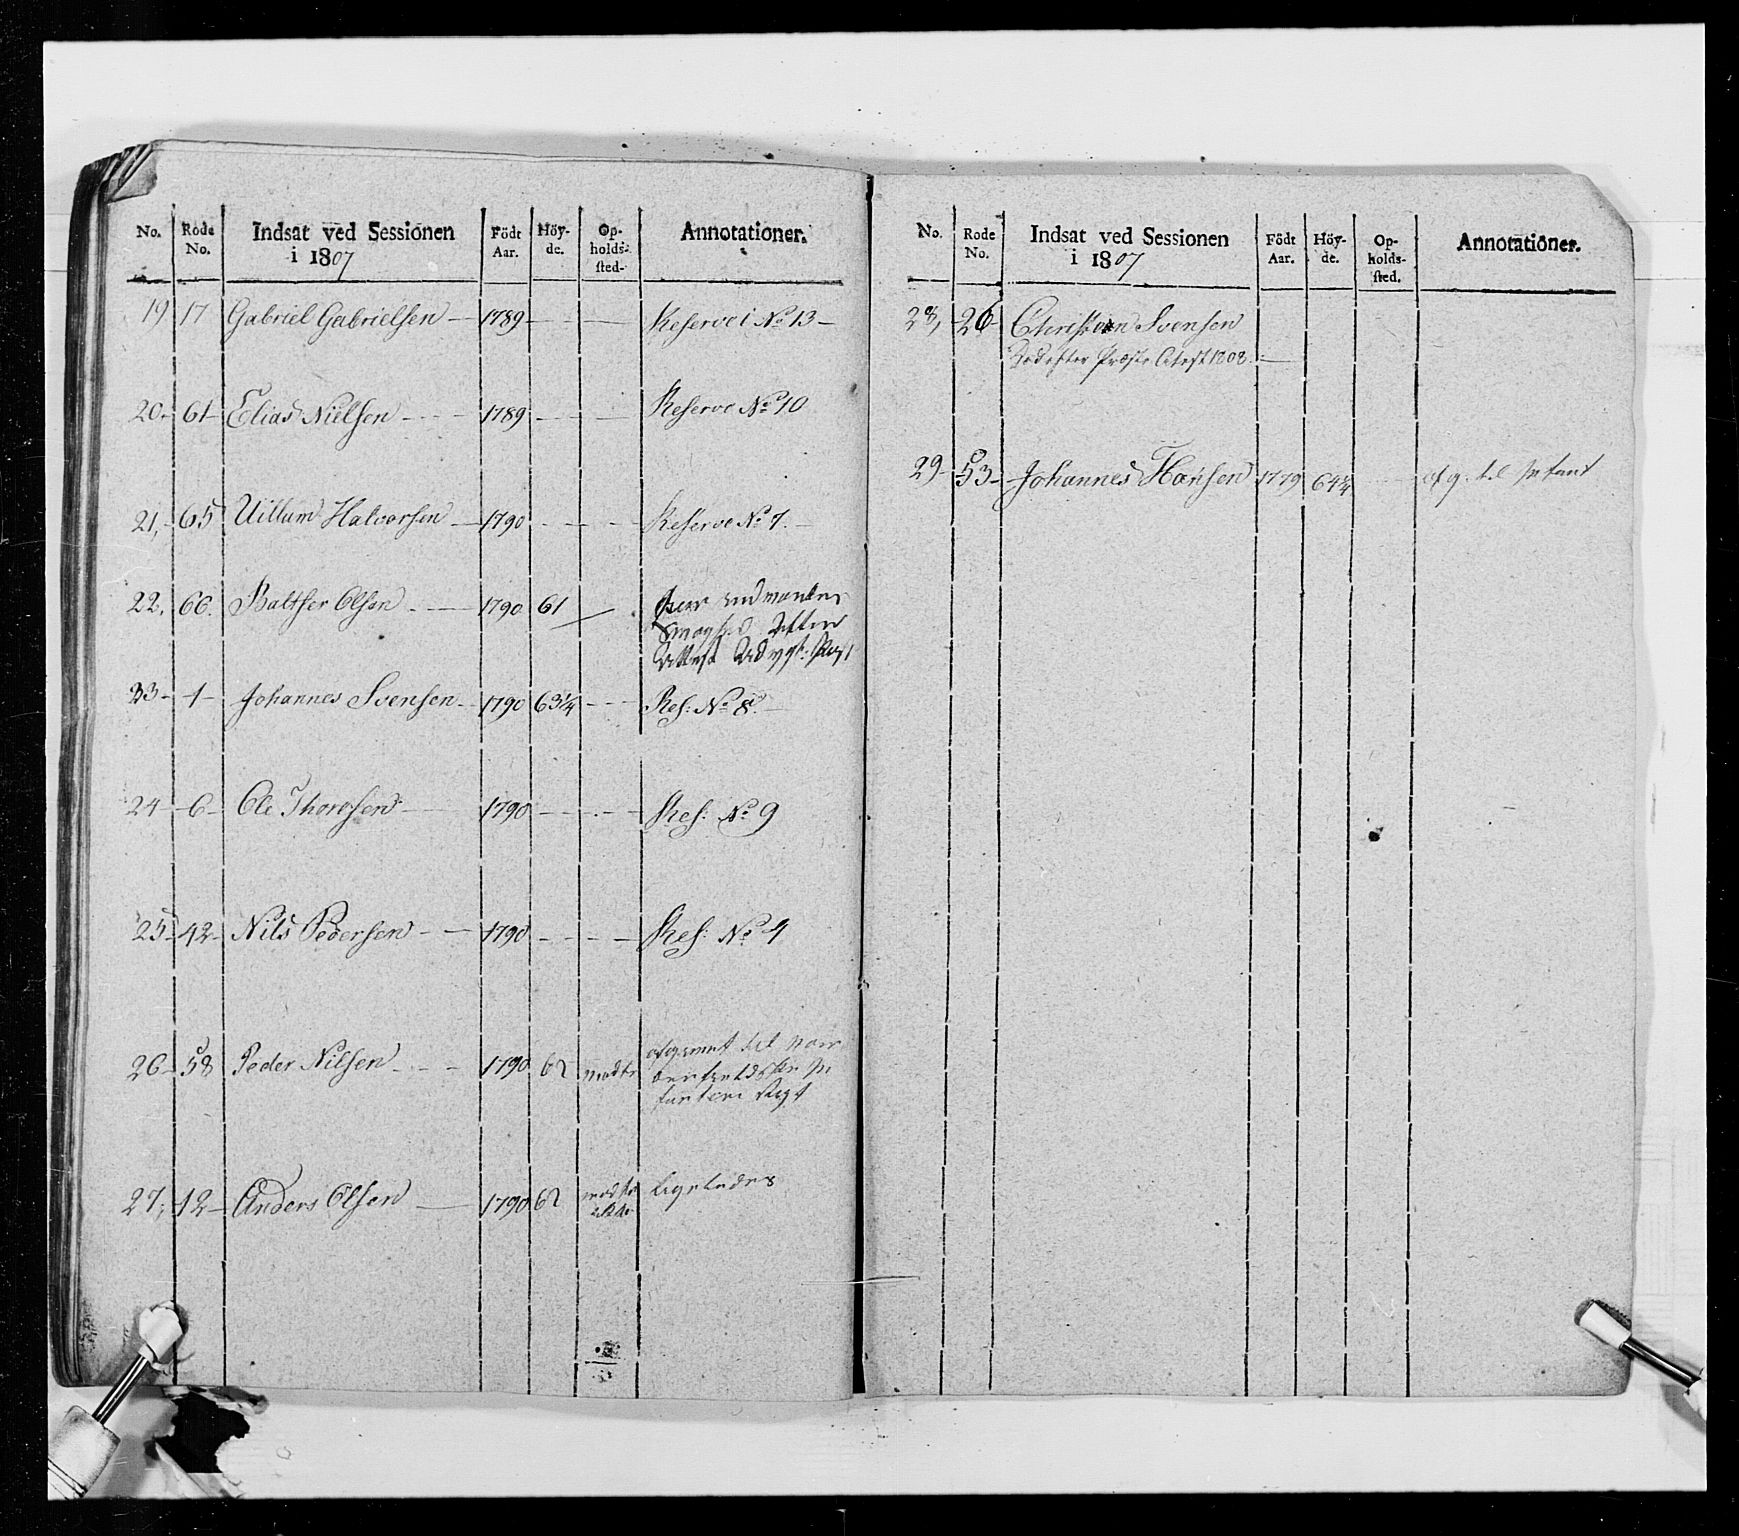 No. Rode No. Indsat ved Sessionen i 1807 Födt Aar. Höyde. Opholdssted. Annotationer.
19 17 Gabriel Gabrielsen — 1789 — — Reserve i No 13 —
20 - 61 - Elias Nielsen — 1789 — — Reserve No 10
21, - 65 Willum Halvorsen — 1790 — — Reserve No 7. —
22, 66. Baltser Olsen — 1790 61 —
23 - 1 - Johannes Svensen - 1790 63 1/4 — Res: No 8. —
24 - 6 - Ole Thoresen — 1790 — — Res: No 9
25 - 42 - Nils Pedersen — 1790 — — Res: No 4
26 - 58 Peder Nilsen — 1790 62 til
27, 12 - Anders Olsen — 1790 62 ligeledes
No. Rode No. Indsat ved Sessionen i 1807 Födt Aar. Höyde. Opholdssted. Annotationer.
28, - 26 Christen Svensen
Død efter Præste Attest 1808 —
29 - 53 - Johannes Hansen 1779 64 afg. til